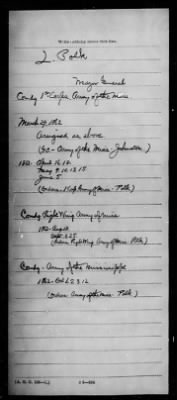 L. Polk
Major General
Comdg 1st Corps Army of the Miss
March 29, 1862
Assigned as above
(GO - Army of the Miss - Johnston)
1862. April 16, 12.
May 9, 10, 13, 15
June 5
(Orders - Army of Miss - Polk)
Comdg Right Wing Army of Miss
1862 - Aug 18
Sept. 2, 25
(Orders Right Wing, Army of Miss - Polk)
Comdg - Army of the Mississippi
1862 - Oct 6, 2, 3, 12
(Orders Army of the Miss - Polk)